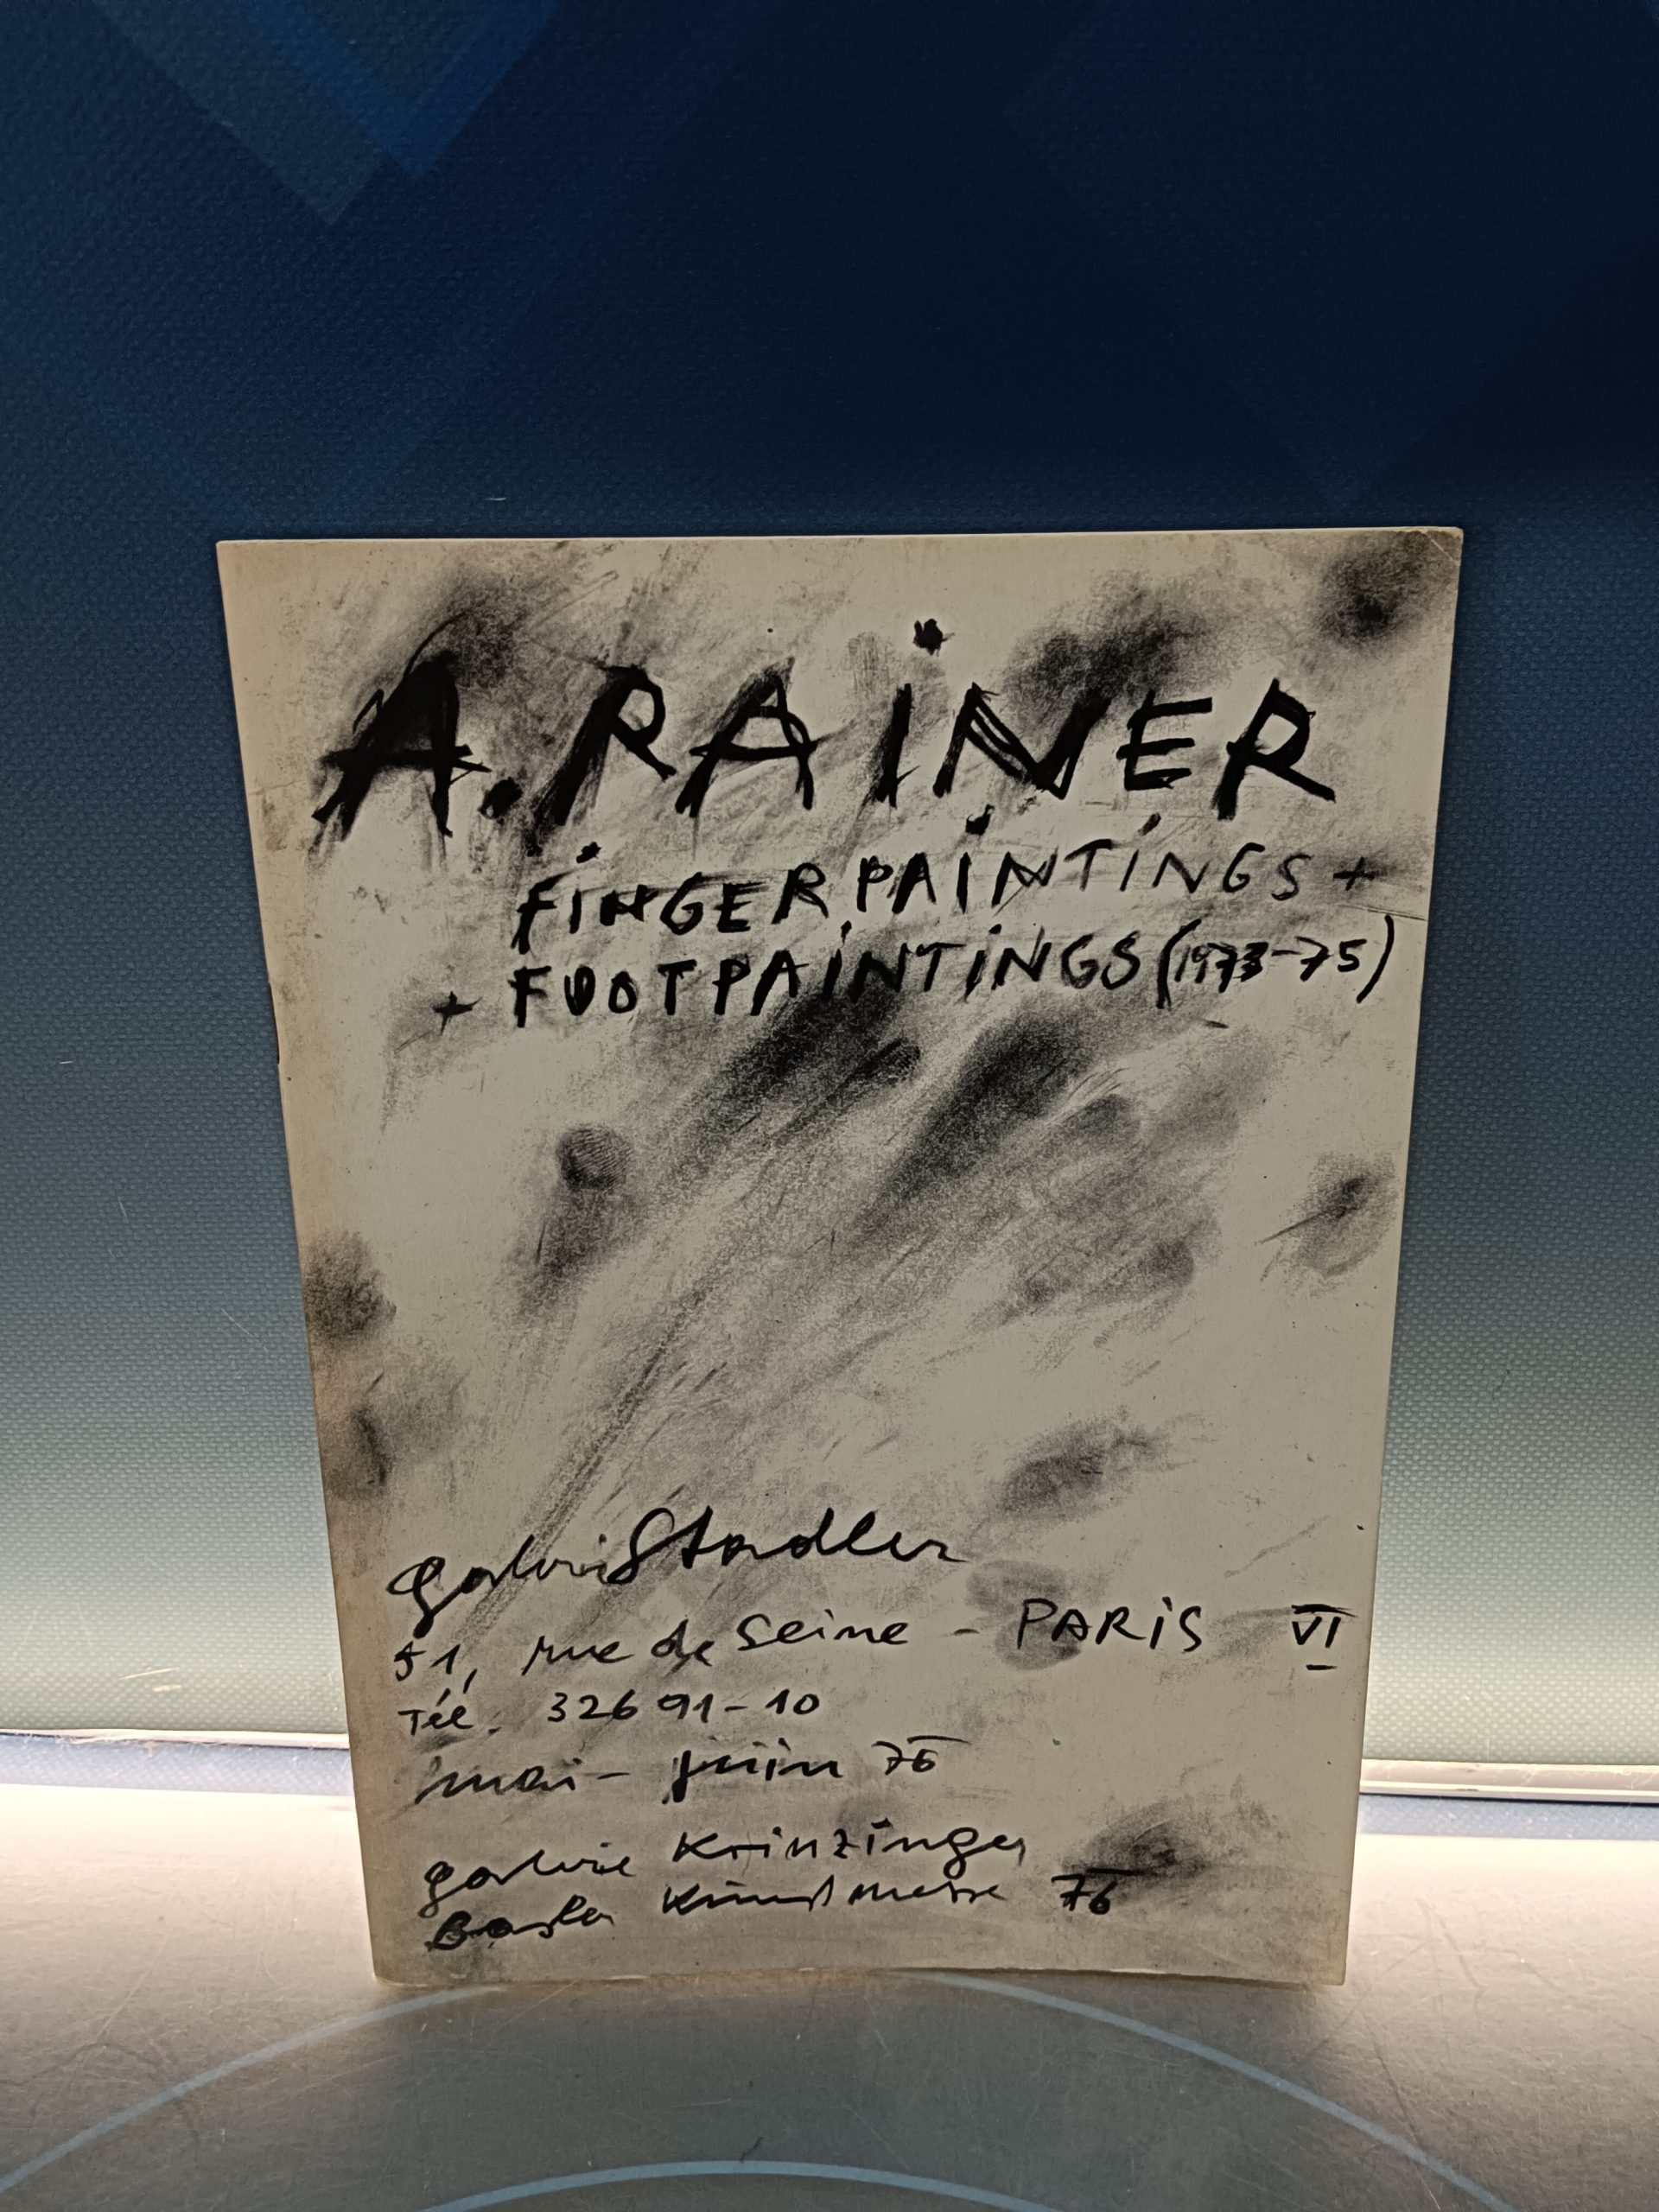 A. RAiNER
FiNGERPAiNTiNGS +
+ FOOTPAiNTiNGS (1973-75)
galerie Stadler
51, rue de Seine - PARiS VI
Tél. 326 91-10
mai - juin 76
galerie Krinzinger
Basler Kunstmesse 76